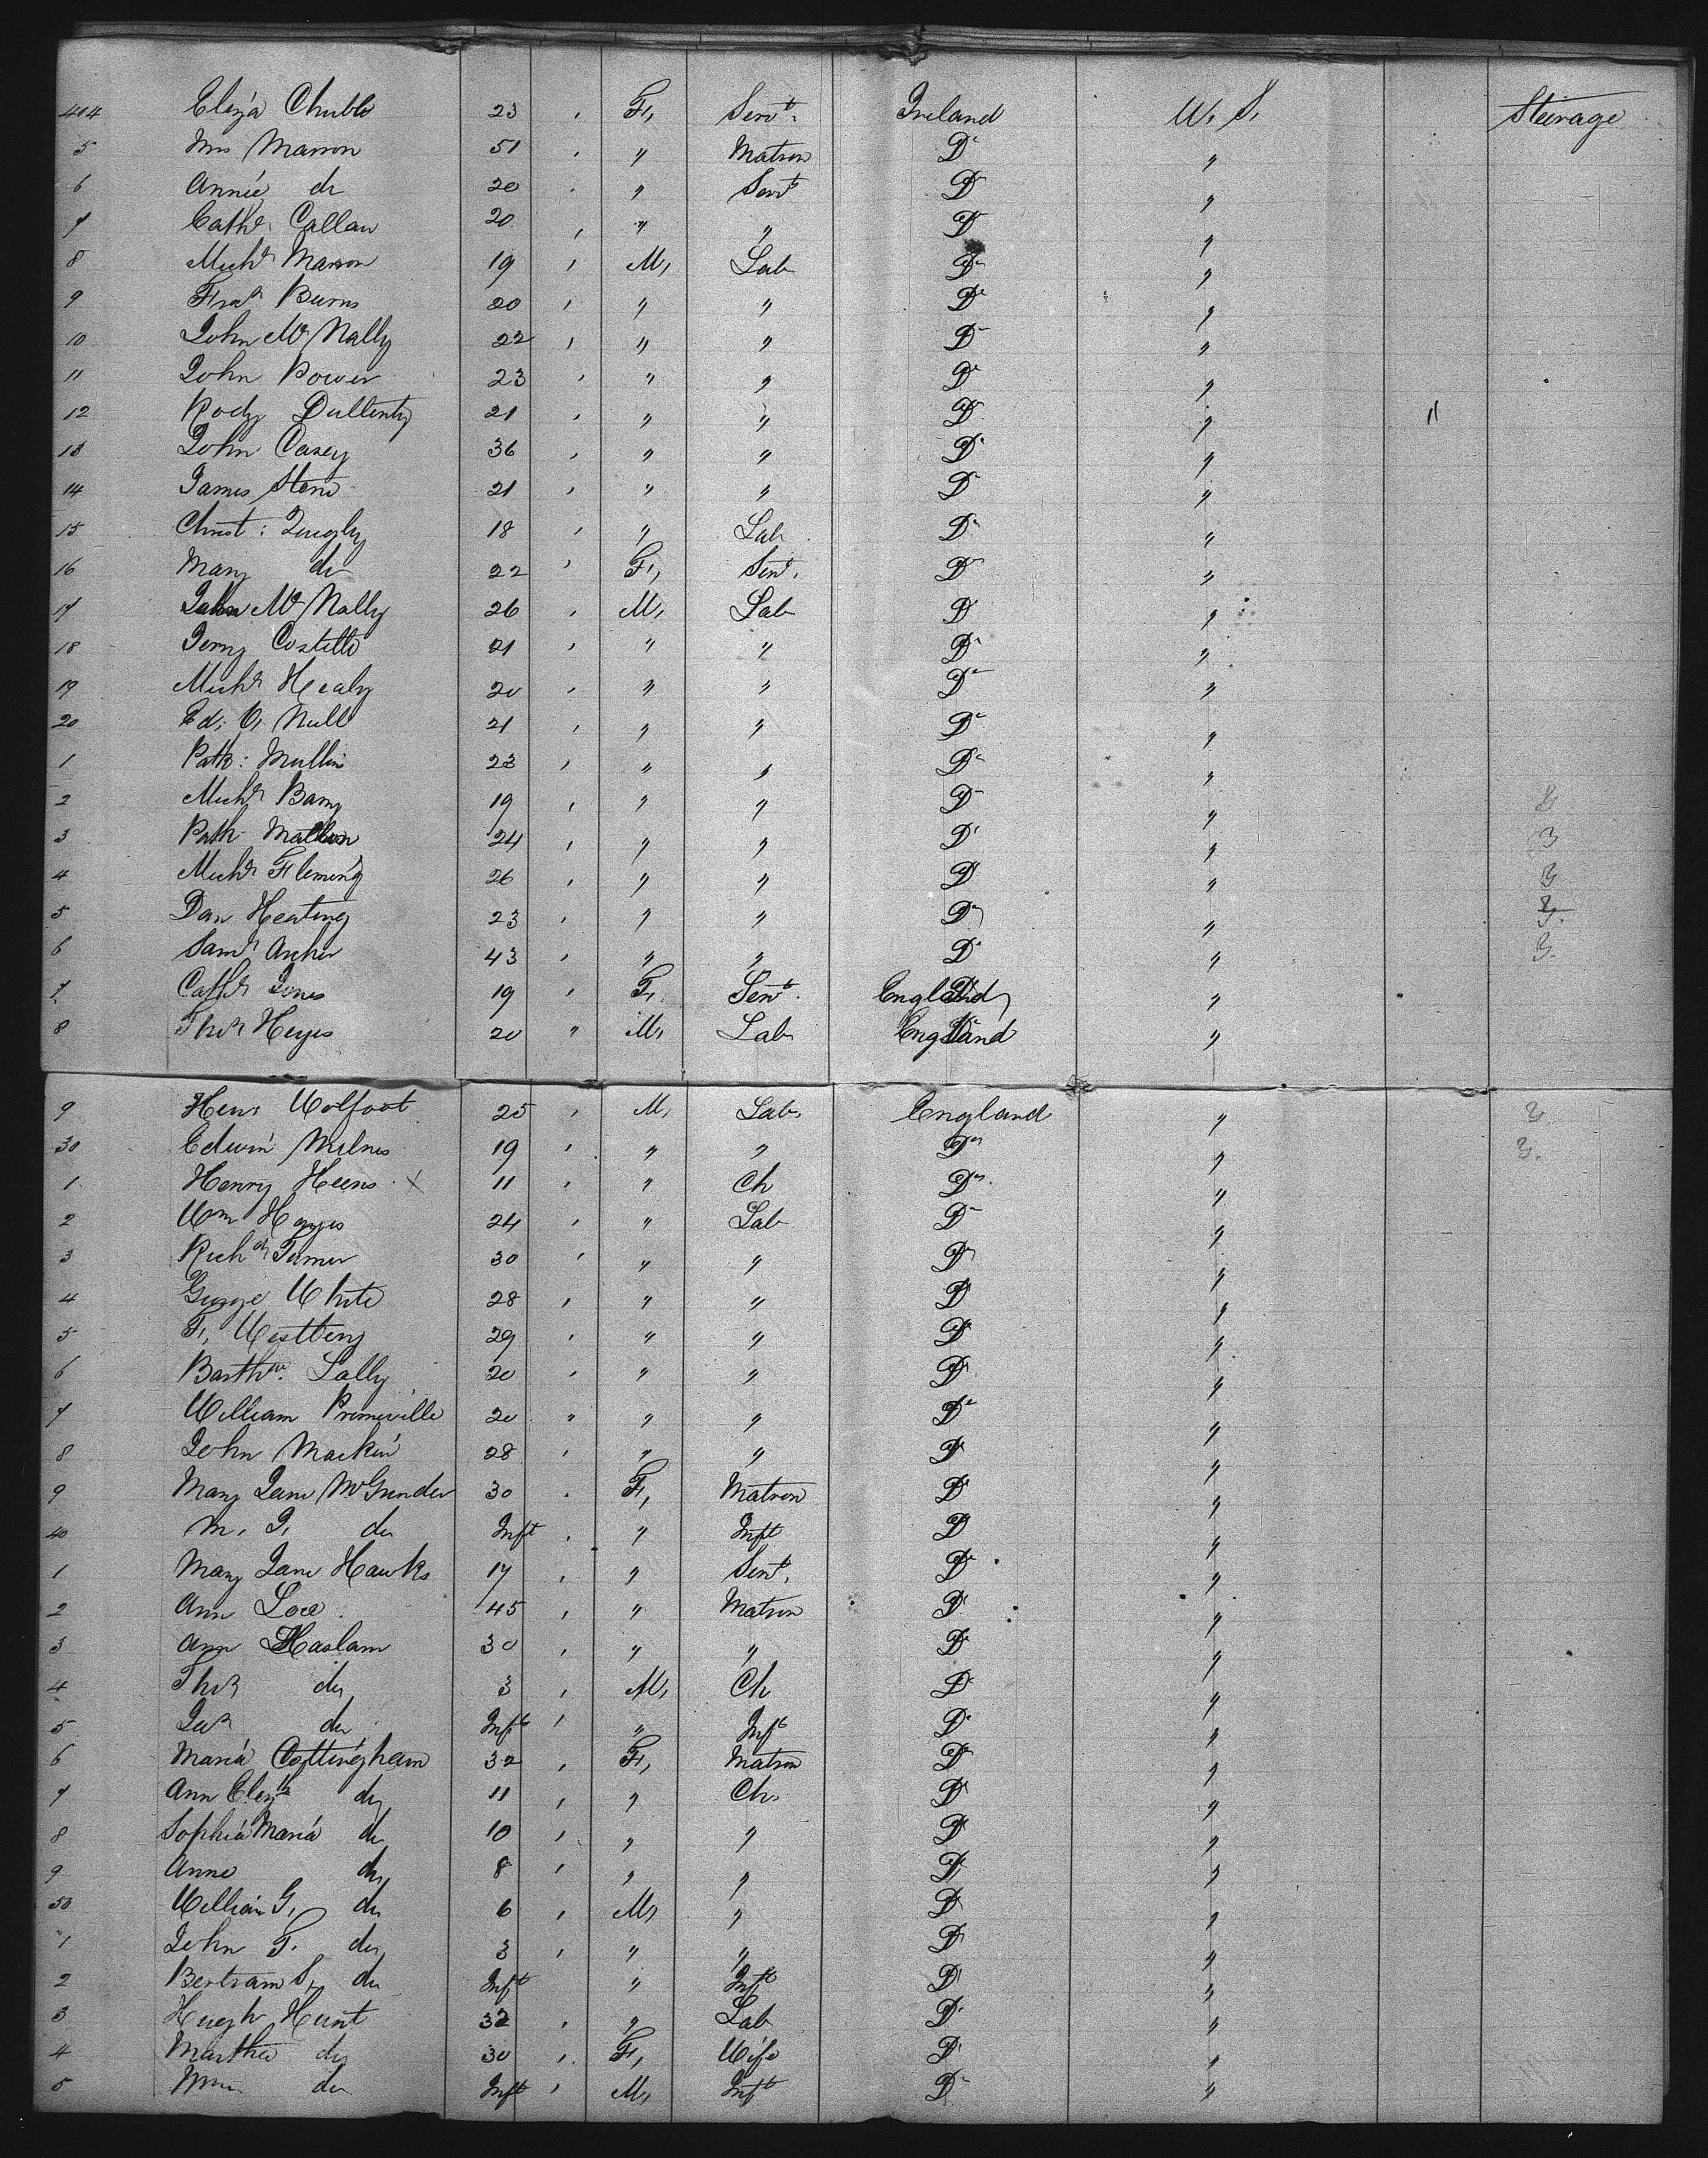 404 Eliza Chubb 23 , F, Servt. Ireland U. S. Steerage
5 Mrs Marron 51 , " Matron Do "
6 Annie do 20 , " Servt Do "
7 Cathe Callan 20 , " " Do "
8 Michl Marron 19 , M, Lab Do "
9 Fras Burns 20 , " " Do "
10 John McNally 22 , " " Do "
11 John Power 23 , " " Do "
12 Rody Dullenty 21 , " " Do " "
13 John Casey 36 , " " Do "
14 James 21 , " " Do "
15 Christ: Quigly 18 , " Lab Do "
16 Mary do 22 , F, Servt. Do "
17 John McNally 26 , M, Lab Do "
18 Jerry Costello 21 , " " Do "
19 Michl Healy 20 , " " Do "
20 Ed: O, Neill 21 , " " Do "
1 Patk: Mullin 23 , " " Do "
2 Michl Barry 19 , " " Do "
3 Patk 24 , " " Do " 3
4 Michl Fleming 26 , " " Do " 3
5 Dan Keating 23 , " " Do "
6 Saml Archer 43 , " " Do " 3.
7 Cathe Jones 19 , F, Servt. England "
8 Thos Heyes 20 " M, Lab England "
9 Wolfoot 25 , M, Lab. England " 3.
30 Edwin Milnes 19 , " " Do " 3.
1 Henry Heens X 11 , " Ch Do "
2 Wm Heyes 24 , " Lab Do "
3 Richd Turner 30 , " " Do "
4 George White 28 , " " Do "
5 F, Westbery 29 , " " Do "
6 Barthw. Lally 20 , " " Do "
7 William Primeville 20 " " " Do "
8 John Mackin 28 , " " Do "
9 Mary Jane 30 , F, Matron Do "
40 M. J, do Inft , " Inft Do "
1 Mary Jane Hawks 17 , " Servt. Do "
2 Ann 45 , " Matron Do "
3 Ann Haslam 30 , " " Do "
4 Thos do 3 , M, Ch Do "
5 Jas do Inft , " Inft Do "
6 Maria Cottingham 32 , F, Matron Do "
7 Ann Elizth do 11 , " Ch. Do "
8 Sophia Maria do 10 , " " Do "
9 Anne do 8 , " " Do "
50 William G, do 6 , M, " Do "
1 John F. do 3 , " " Do "
2 Bertram S, do Inft " Inft Do "
3 Hugh Hunt 32 , " Lab Do "
4 Martha do 30 , F, Wife Do "
5 Wm do Inft , M, Inft Do "